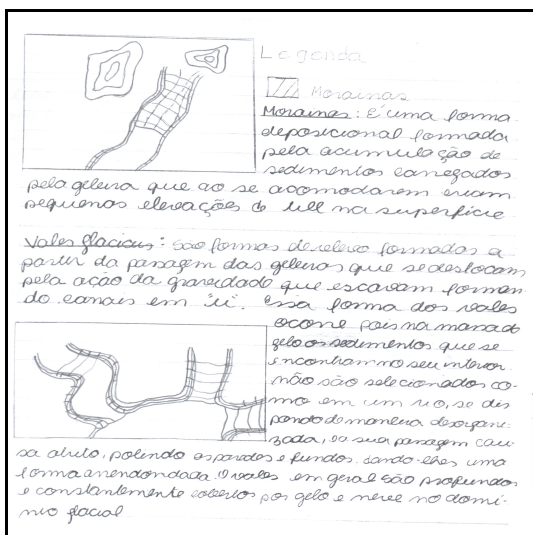 Legenda
Morainas
Morainas: É uma forma
deposicional formada
pela acumulação de
sedimentos carregados
pela geleira que ao se acomodarem criam
pequenas elevações de till na superfície
Vales glaciais: São formas de relevo formadas a
partir da passagem das geleiras que se deslocam
pela ação da gravidade que escavam forman
do canais em "U". Essa forma dos vales
ocorre pois na massa de
gelo os sedimentos que se
encontram no seu interior
não são selecionados co-
mo em um rio, se dis
pondo de maneira desorgani-
zada, ea sua passagem cau
sa atrito, polindo as paredes e fundos dando-lhes uma
forma arredondada. O vales em geral são profundos
e constantemente cobertos por gelo e neve no domí-
nio glacial